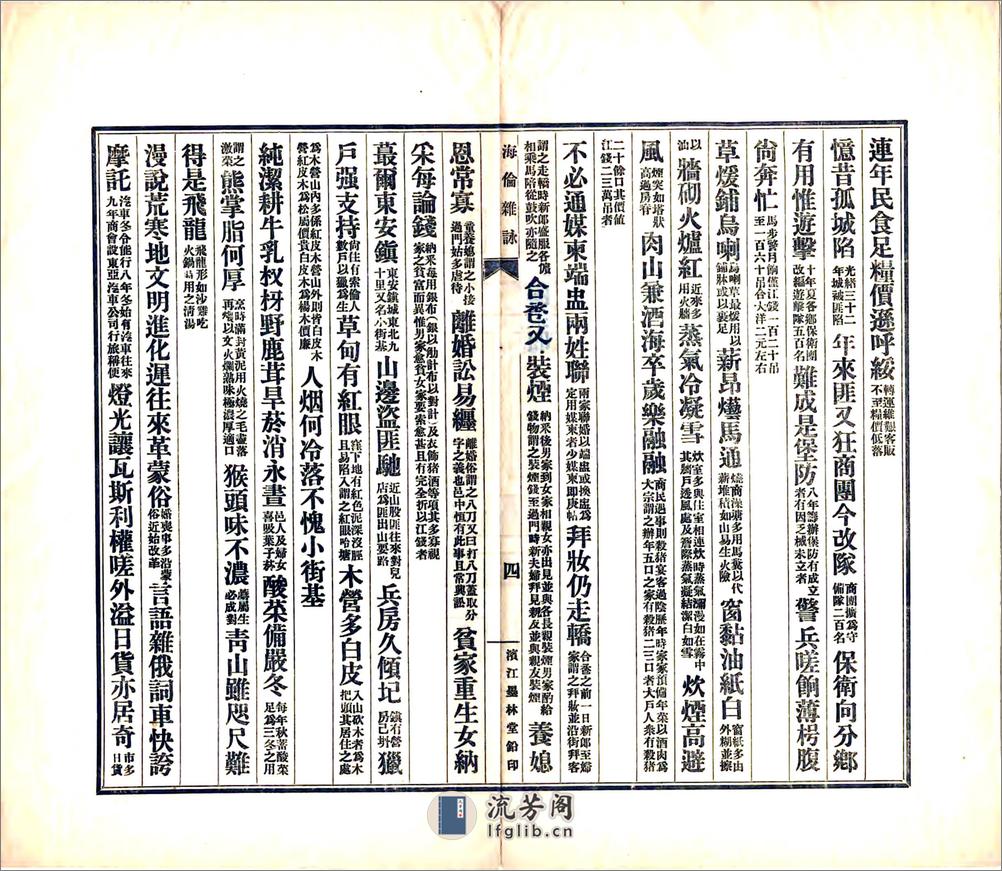 連年民食足糧價遜呼綏 轉運維艱客販不至糧價低落
憶昔孤城陷 光緒三十二年城被匪陷 年來匪又狂商團今改隊 商團擴爲守備隊二百名 保衛向分鄉
有用惟遊擊 十年夏各鄉保衛團改編遊擊隊五百名 難成是堡防 八年籌辦堡防有成立者有因乏械未立者 警兵嗟餉薄枵腹
尙奔忙 馬步警月餉僅江錢一百二十吊至一百六十吊合大洋二元左右
草煖鋪烏喇 烏喇草最煖用以鋪牀或以裹足 薪昂爇馬通 燒商多用馬糞以代薪堆積如山易生火險 窗黏油紙白 窗紙多由外糊並擦
以油 牆砌火爐紅 近來多用火牆 蒸氣冷凝雪 炊室多與住室相連炊時蒸氣瀰漫如在霧中其牖戶透風處及簷際蒸氣凝結潔白如雪 炊煙高避
風 煙突如塔狀高過房脊 肉山兼酒海卒歲樂融融 商民遇事則殺猪宴客過陰歷年時家家預備年菜以酒肉爲大宗謂之辦年五口之家有殺猪二三口者大戶人衆有殺猪
二十餘口其價值江錢二三萬吊者
不必通媒柬端盅兩姓聯 兩家聯婚以端盅或換盅爲定用媒柬者少媒柬即庚帖 拜妝仍走轎 合巹之前一日新郞至婦家謂之拜妝並沿街拜客
謂之走轎時新郞盛服各儐相乘馬陪從鼓吹亦隨之 合巹又裝煙 納釆後男家到女家相親女亦出見並與各長親裝煙男家酌給錢物謂之裝煙錢至過門時新夫婦拜見親友並與親友裝煙 養媳
海倫雜詠 四 濱江墨林堂鉛印
恩常寡 童養媳謂之小接過門姑多虐待 離婚訟易纏 離婚俗謂之八刀又曰打八刀蓋取分字之義也邑中恒有此事且常興訟 貧家重生女納
采每論錢 納釆每用銀布(銀以觔計布以對計)及衣飾猪酒等項其多寡視家之貧富而異惟男家愈貧女家要索愈甚且有完全折以江錢者
蕞爾東安鎭 東安鎭城東北九十里又名小街基 山邊盜匪馳 近山股匪往來對兒店爲匪出山要路 兵房久傾圮 鎭有營房已圯 獵
戶强支持 尙住有索倫人數戶以獵爲生 草甸有紅眼 窪下地有紅色泥深沒脛且易陷入謂之紅眼哈塘 木營多白皮 入山砍木者爲木把頭其居住之處
爲木營山內多係紅皮木營山外則皆白皮木營紅皮木爲松屬價貴白皮木爲楊木價廉 人烟何冷落不愧小街基
純潔耕牛乳杈枒野鹿茸旱菸消永晝 邑人及婦女喜吸葉子菸 酸菜備嚴冬 每年秋蓄酸菜足爲三冬之用
謂之激菜 熊掌脂何厚 烹時滿封黃泥用火燒之毛盡落再燉以文火爛熟味極濃厚適口 猴頭味不濃 蘑屬生必成對 靑山雖咫尺難
得是飛龍 飛龍形如沙雞吃火鍋易用之淸湯
漫說荒寒地文明進化遲往來革蒙俗 婚喪事多沿蒙俗近始改革 言語雜俄詞車快誇
摩託 汽車冬令能行八年冬始有汽車往來九年商會設東亞汽車公司行旅稱便 燈光讓瓦斯利權嗟外溢日貨亦居奇 市多日貨
流芳阁
lfglib.cn